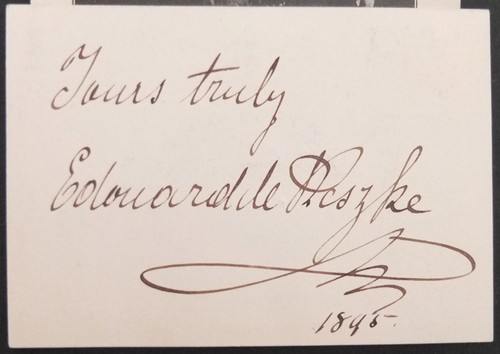 Yours truly
Edouard de Reszke
1895.